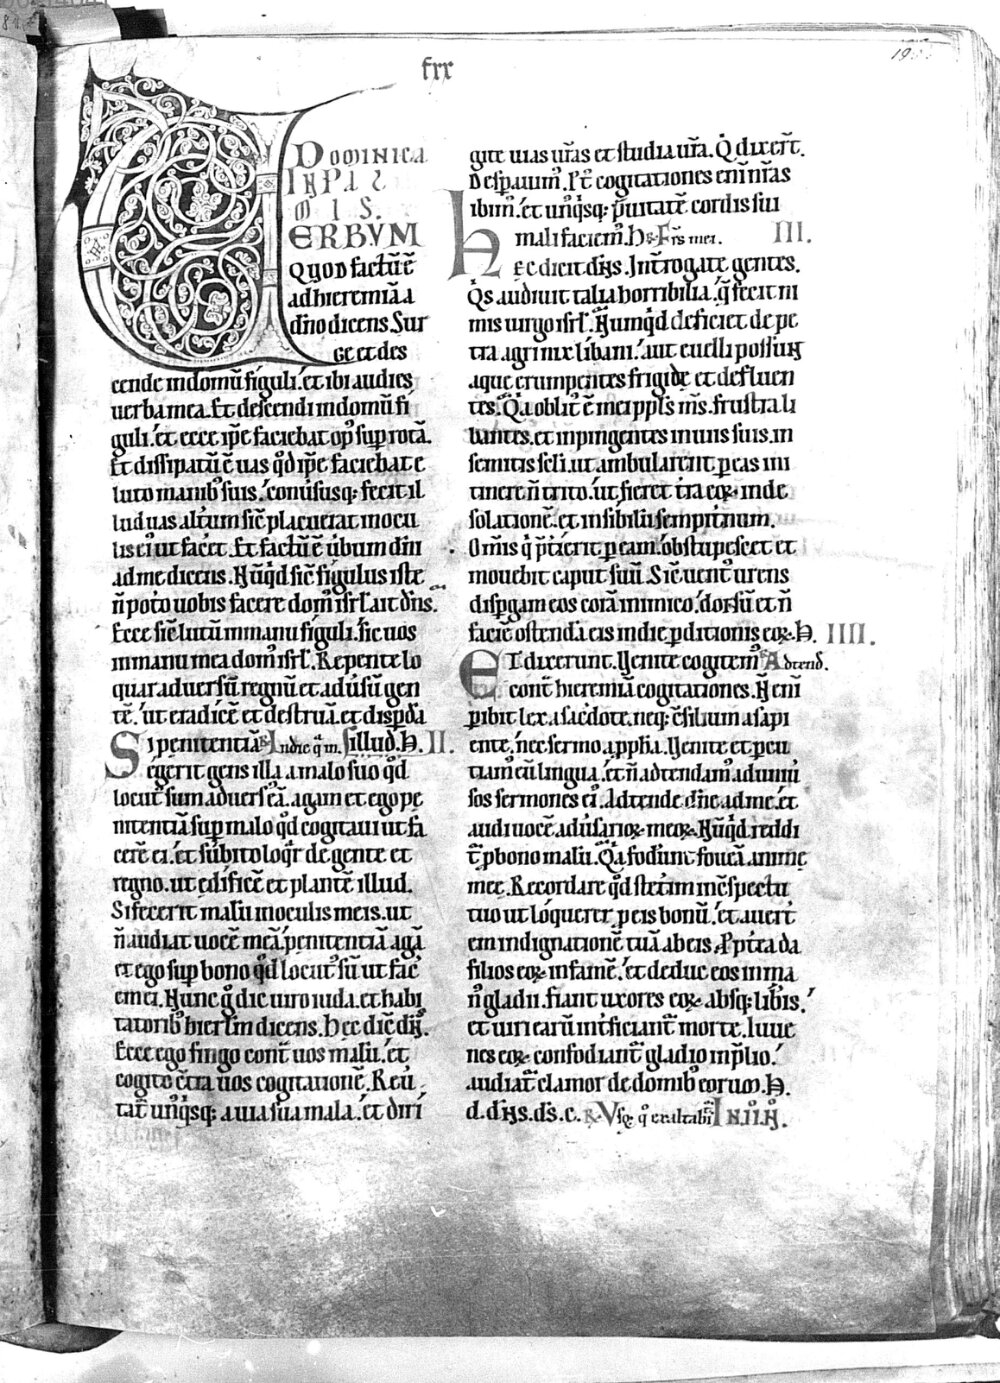 fxx
19
DOMINICA
IN PAL
MIS.
ERBVM
Quod factū ē
ad hieremiā a
dño dicens. Sur
ge et des
cende in domū figuli. et ibi audies
uerba mea. Et descendi in domū fi
guli. et ecce ip̄e faciebat op᷒ sup rotā.
Et dissipatū ē uas qd̄ ip̄e faciebat e
luto manib᷒ suis. conūsusq; fecit il
lud uas altūm sic̄ placuerat in ocu
lis ei᷒ ut facēt. Et factū ē ūbum dñi
ad me dicens. Nūqd̄ sic̄ figulus iste
ñ potō uobis facere dom᷒ isrl̄. ait dñs.
Ecce sic̄ lutū in manu figuli. sic uos
in manu mea dom᷒ isrl̄. Repente lo
quar aduersū regnū et adūsū gen
tē. ut eradicē et destruā et dispdā
Si penitentiā illud. II.
egerit gens illa a malo suo qd̄
locut᷒ sum aduers᷒ eā. agam et ego pe
nitentiā sup malo qd̄ cogitaui ut fa
cerē ei. et subito loqr̄ de gente et
regno. ut edificē et plantē illud.
Si fecerit malū in oculis meis. ut
ñ audiat uocē meā. penitentiā agā
et ego sup bono qd̄ locut᷒ sū ut fac̄
em ei. Nunc g̊ dic uiro iuda. et habi
tatorib᷒ hierl̄m dicens. Hec dic̄ dñs.
Ecce ego fingo cont̄ uos malū. et
cogito ct̄ra uos cogitationē. Reū
tat̄ unq̇sq; a uia sua mala. et diri
gite uias ūras et studia ūra. Q̇ dixert̄.
Despauim᷒. P᷒t cogitationes eni nr̄as
ibim᷒. et unq̇sq; prauitatē cordis sui
mali faciem᷒. III.
Hec dicit dñs. Introgate gentes.
Qis audiuit talia horribilia. q̄ fecit ni
mis uirgo isrl̄. Numqd̄ deficiet de pe
tra agri nix libani. aut euelli possunt
aque erumpentes frigide et defluen
tes. Qa oblit᷒ ē mei ppl̄s m̄s. frustra li
bantes. et inpingentes in uiis suis. in
semitis seli. ut ambularent p eas in i
tinere ñ trito. ut fieret tr̄a eoꝝ in de
solationē. et in sibilū sempitnum.
Om̄is q̇ pt̄ierit p eam. obstupescet et
mouebit caput suū. Sic̄ uent᷒ urens
dispgam eos corā inimico. dorsū et ñ
faciē ostendā eis in die pditionis eoꝝ. IIII.
Et dixerunt. Uenite cogitem᷒
cont̄ hieremiā cogitationes. Ñ eni
pibit lex a sac̄dote. neq; c̄silium a sapi
ente. nec sermo a pph̄a. Uenite et pcu
tiam᷒ eū lingua. et ñ adtendam᷒ ad uniū
sos sermones ei᷒. Adtende dñe ad me. et
audi uocē adūsarioꝝ meoꝝ. Nūqd̄ reddi
t̄ p bono malū. Qa foderunt foueā anime
mee. Recordare qd̄ steterim in c̄spectu
tuo ut loquerer p eis bonū. et auert̄
em indignationē tuā ab eis. Ppt̄ea da
filios eoꝝ in famē. et deduc eos in ma
n᷒ gladii. Fiant uxores eoꝝ absq; lib̄is.
et uiri earū int̄ficiant̄ morte. Iuue
nes eoꝝ confodiant̄ gladio in p̄lio.
audiat̄ clamor de domib᷒ eorum.